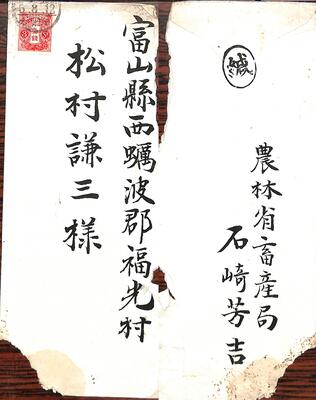 富山縣西蠣波郡福光村
松村謙三様
緘
農林省畜産局
石崎芳吉